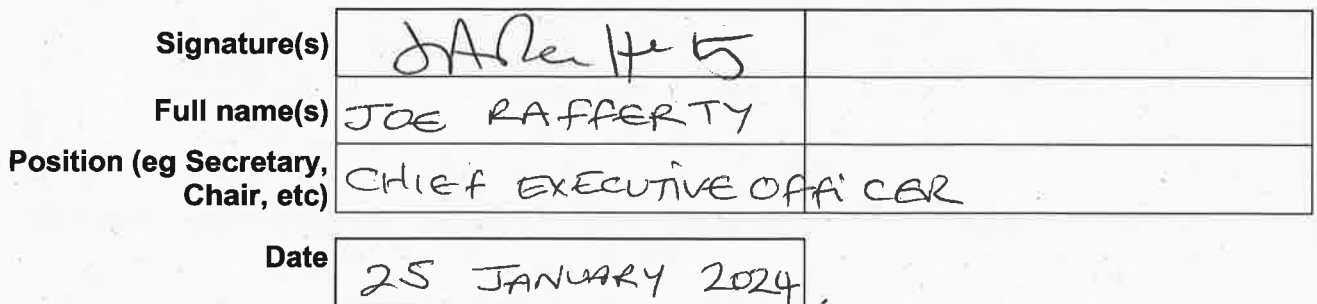 Signature(s)
Full name(s) JOE RAFFERTY
Position (eg Secretary,
Chair, etc) CHIEF EXECUTIVE OFFICER
Date 25 JANUARY 2024